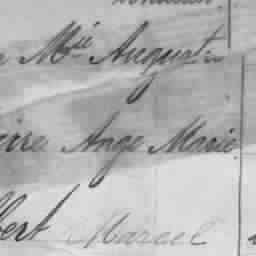 Mie Augustin
aire Ange Marie
bert Marcel